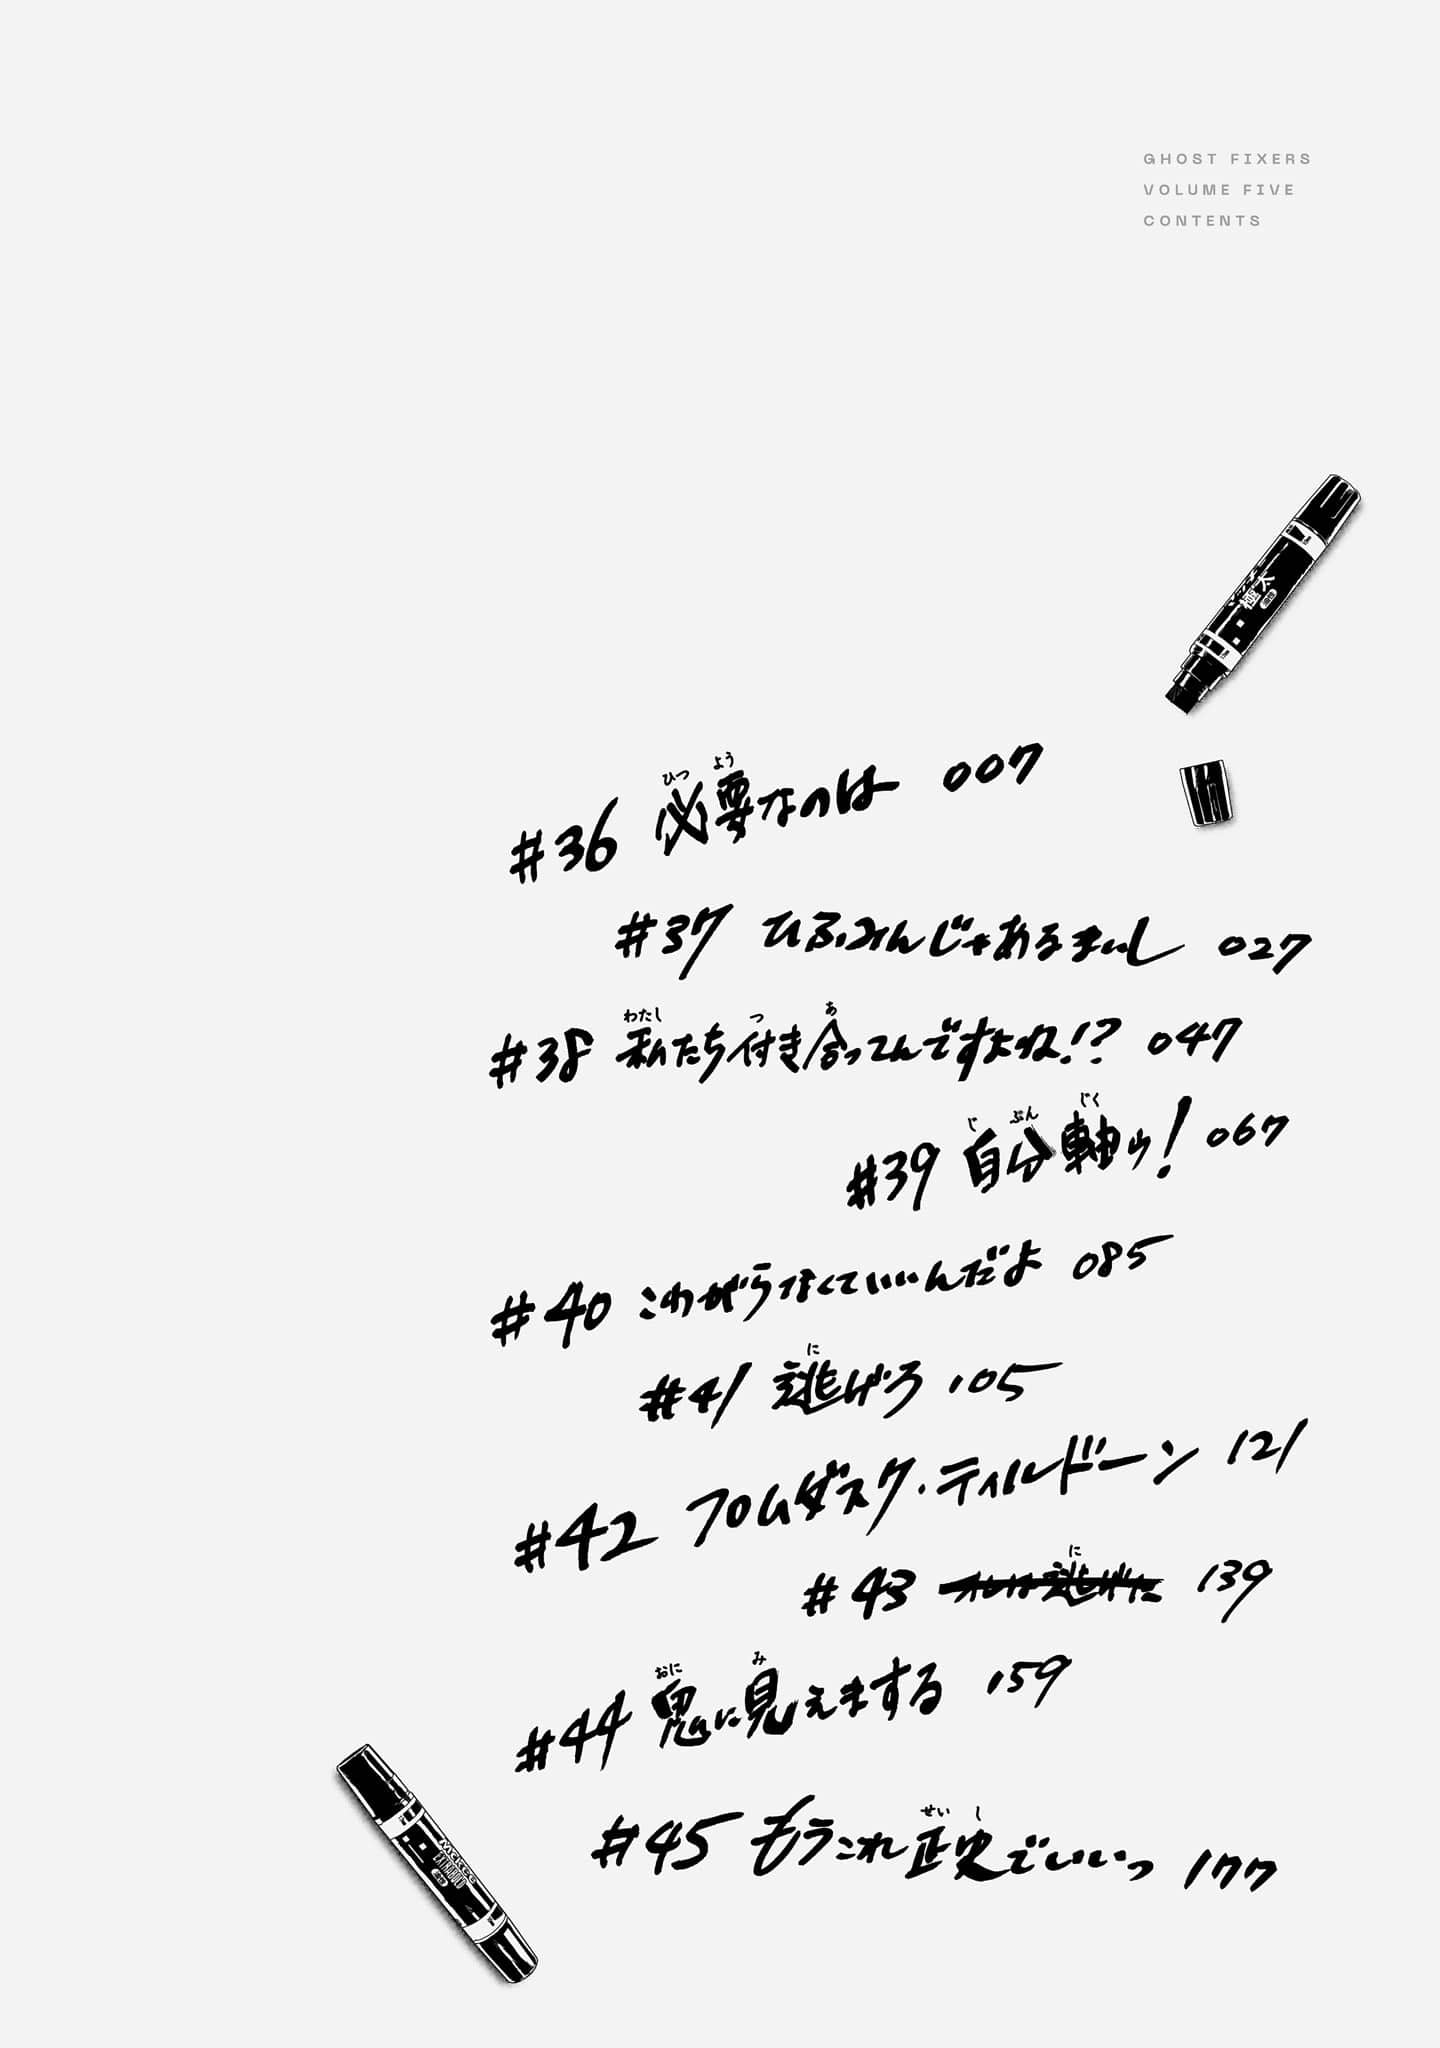 GHOST FIXERS
VOLUME FIVE
CONTENTS
極太
#36 必要なのは 007
ひつ よう
#37 ひふみんじゃあるまいし 027
#38 私たち付き合ってんですよね!? 047
わたし つ あ
#39 自分軸ゥ! 067
じ ぶん じく
#40 こわがらなくていいんだよ 085
#41 逃げろ 105
に
#42 フロムダスク・ティルドーン 121
#43 オレは逃げた 139
に
#44 鬼に見えまする 159
おに み
#45 もうこれ正史でいいっ 177
せい し
Mckee